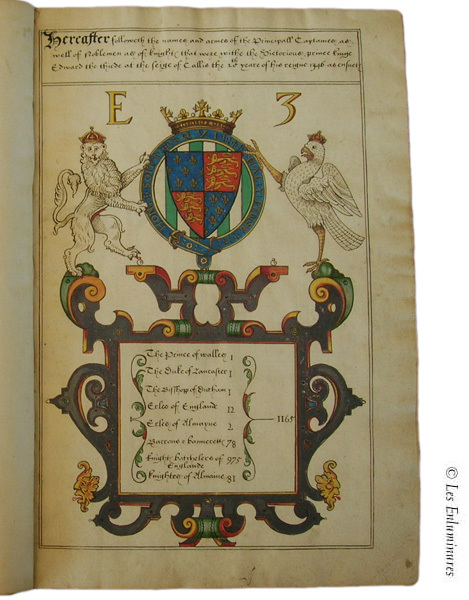 Hereafter followeth the names and armes of the Principall Captaines as
well of Noblemen as of knights that were withe the Victorious prince kinge
Edward the thirde at the seige of Callis the 20 yeare of his reigne 1346 as ensuet
E 3
HONI SOIT QUI MAL Y PENSE
The Prince of walles 1
The Duke of Lancaster 1
The Bisshopp of Durham 1
Erles of Englande 12
Erles of Almayne 2
Barrons & bannerets 78
knights batchelers of 975
Englande
knightes of Almaine 81
1165
© Les Enluminures